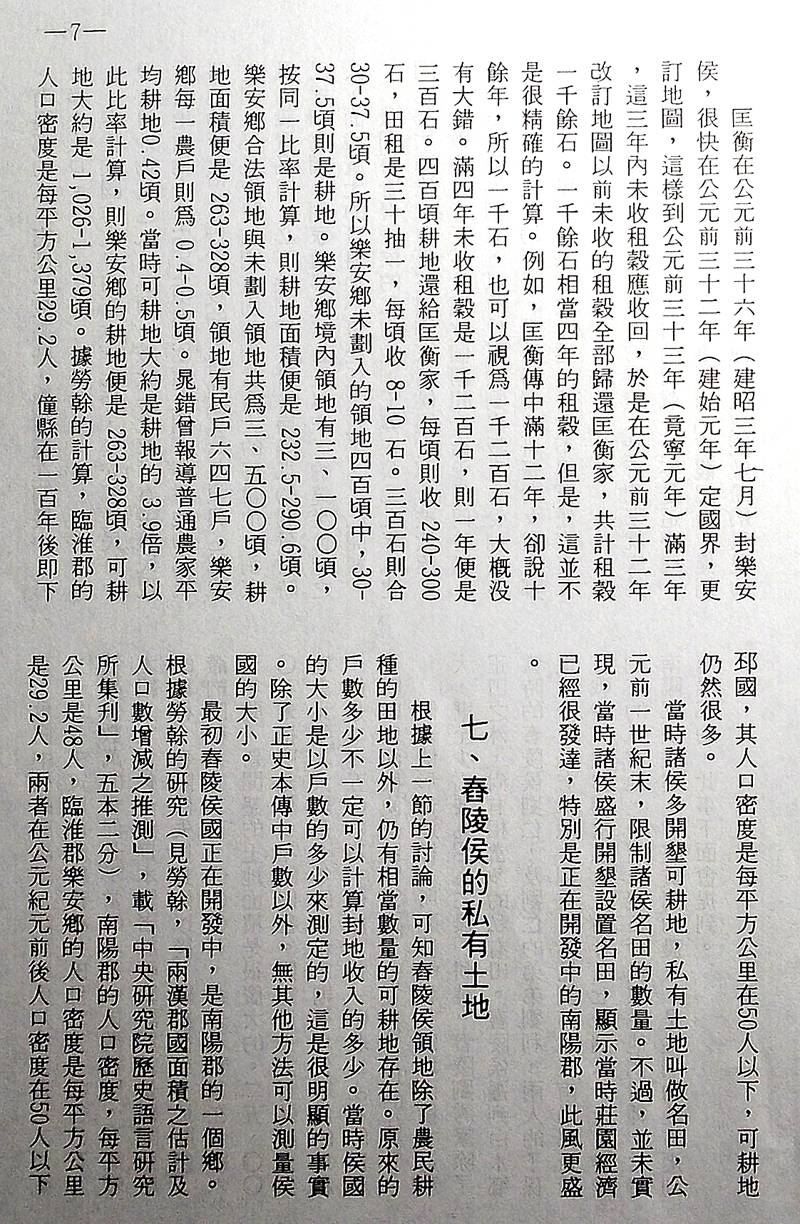 —7—
匡衡在公元前三十六年（建昭三年七月）封樂安
侯，很快在公元前三十二年（建始元年）定國界，更
訂地圖，這樣到公元前三十三年（竟寧元年）滿三年
，這三年內未收租穀應收回，於是在公元前三十二年
改訂地圖以前未收的租穀全部歸還匡衡家，共計租穀
一千餘石。一千餘石相當四年的租穀，但是，這並不
是很精確的計算。例如，匡衡傳中滿十二年，卻說十
餘年，所以一千石，也可以視爲一千二百石，大概没
有大錯。滿四年未收租穀是一千二百石，則一年便是
三百石。四百頃耕地還給匡衡家，每頃則收 240-300
石，田租是三十抽一，每頃收 8-10 石。三百石則合
30-37.5頃。所以樂安鄉未劃入的領地四百頃中，30-
37.5頃則是耕地。樂安鄉境內領地有三、一〇〇頃，
按同一比率計算，則耕地面積便是 232.5-290.6頃。
樂安鄉合法領地與未劃入領地共爲三、五〇〇頃，耕
地面積便是 263-328頃，領地有民戶六四七戶，樂安
鄉每一農戶則爲 0.4-0.5頃。晁錯曾報導普通農家平
均耕地0.42頃。當時可耕地大約是耕地的 3.9倍，以
此比率計算，則樂安鄉的耕地便是 263-328頃，可耕
地大約是 1,026-1,379頃。據勞榦的計算，臨淮郡的
人口密度是每平方公里29.2人，僮縣在一百年後即下
邳國，其人口密度是每平方公里在50人以下，可耕地
仍然很多。
當時諸侯多開墾可耕地，私有土地叫做名田，公
元前一世紀末，限制諸侯名田的數量。不過，並未實
現，當時諸侯盛行開墾設置名田，顯示當時莊園經濟
已經很發達，特別是正在開發中的南陽郡，此風更盛
。
七、舂陵侯的私有土地
根據上一節的討論，可知舂陵侯領地除了農民耕
種的田地以外，仍有相當數量的可耕地存在。原來的
戶數多少不一定可以計算封地收入的多少。當時侯國
的大小是以戶數的多少來測定的，這是很明顯的事實
。除了正史本傳中戶數以外，無其他方法可以測量侯
國的大小。
最初舂陵侯國正在開發中，是南陽郡的一個鄉。
根據勞榦的研究（見勞榦，「兩漢郡國面積之估計及
人口數增減之推測」，載「中央研究院歷史語言研究
所集刋」，五本二分），南陽郡的人口密度，每平方
公里是48人，臨淮郡樂安鄉的人口密度是每平方公里
是29.2人，兩者在公元紀元前後人口密度在50人以下